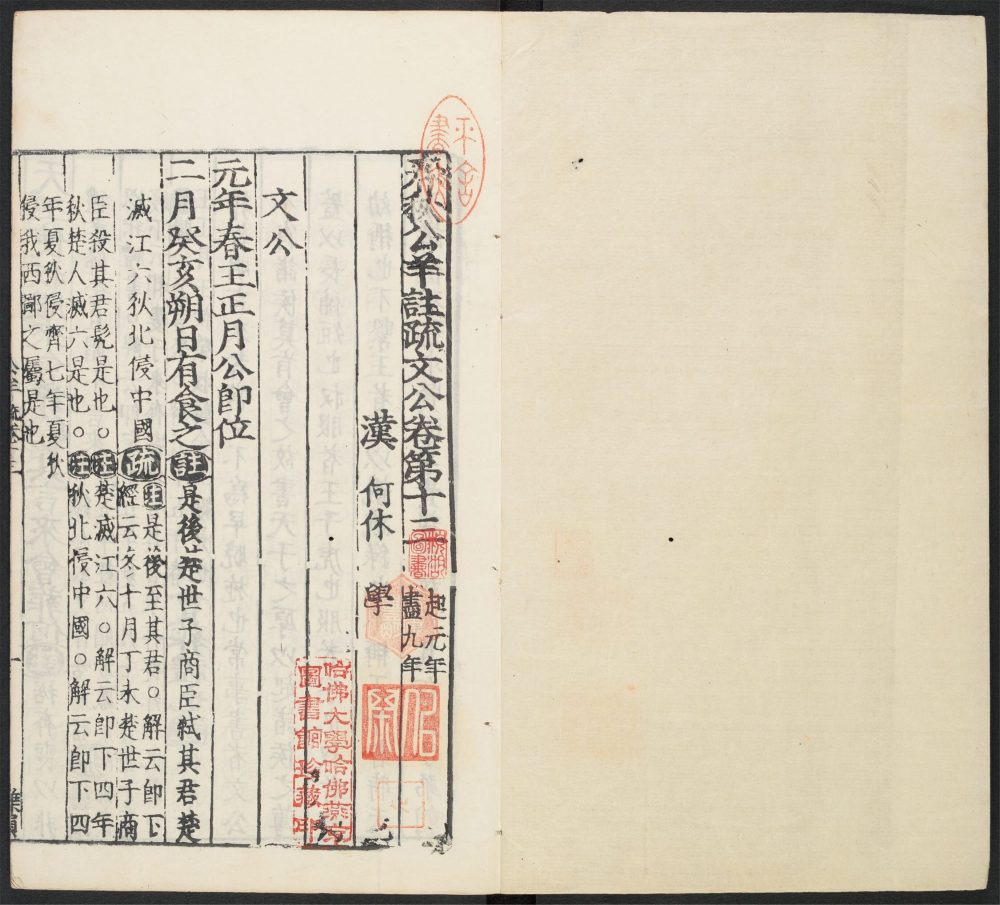 春秋公羊註疏文公卷第十二
起元年
盡九年
漢 何休 學
文公
元年春王正月公卽位
二月癸亥朔日有食之註是後楚世子商臣弒其君楚
滅江六狄北侵中國疏註是後至其君○解云卽下
經云冬十月丁未楚世子商
臣殺其君髡是也○註楚滅江六○解云卽下四年
秋楚人滅六是也○註狄北侵中國○解云卽下四
年夏狄侵齊七年夏狄
侵我西鄙之屬是也
哈佛大學哈佛燕京
圖書館珍藏印